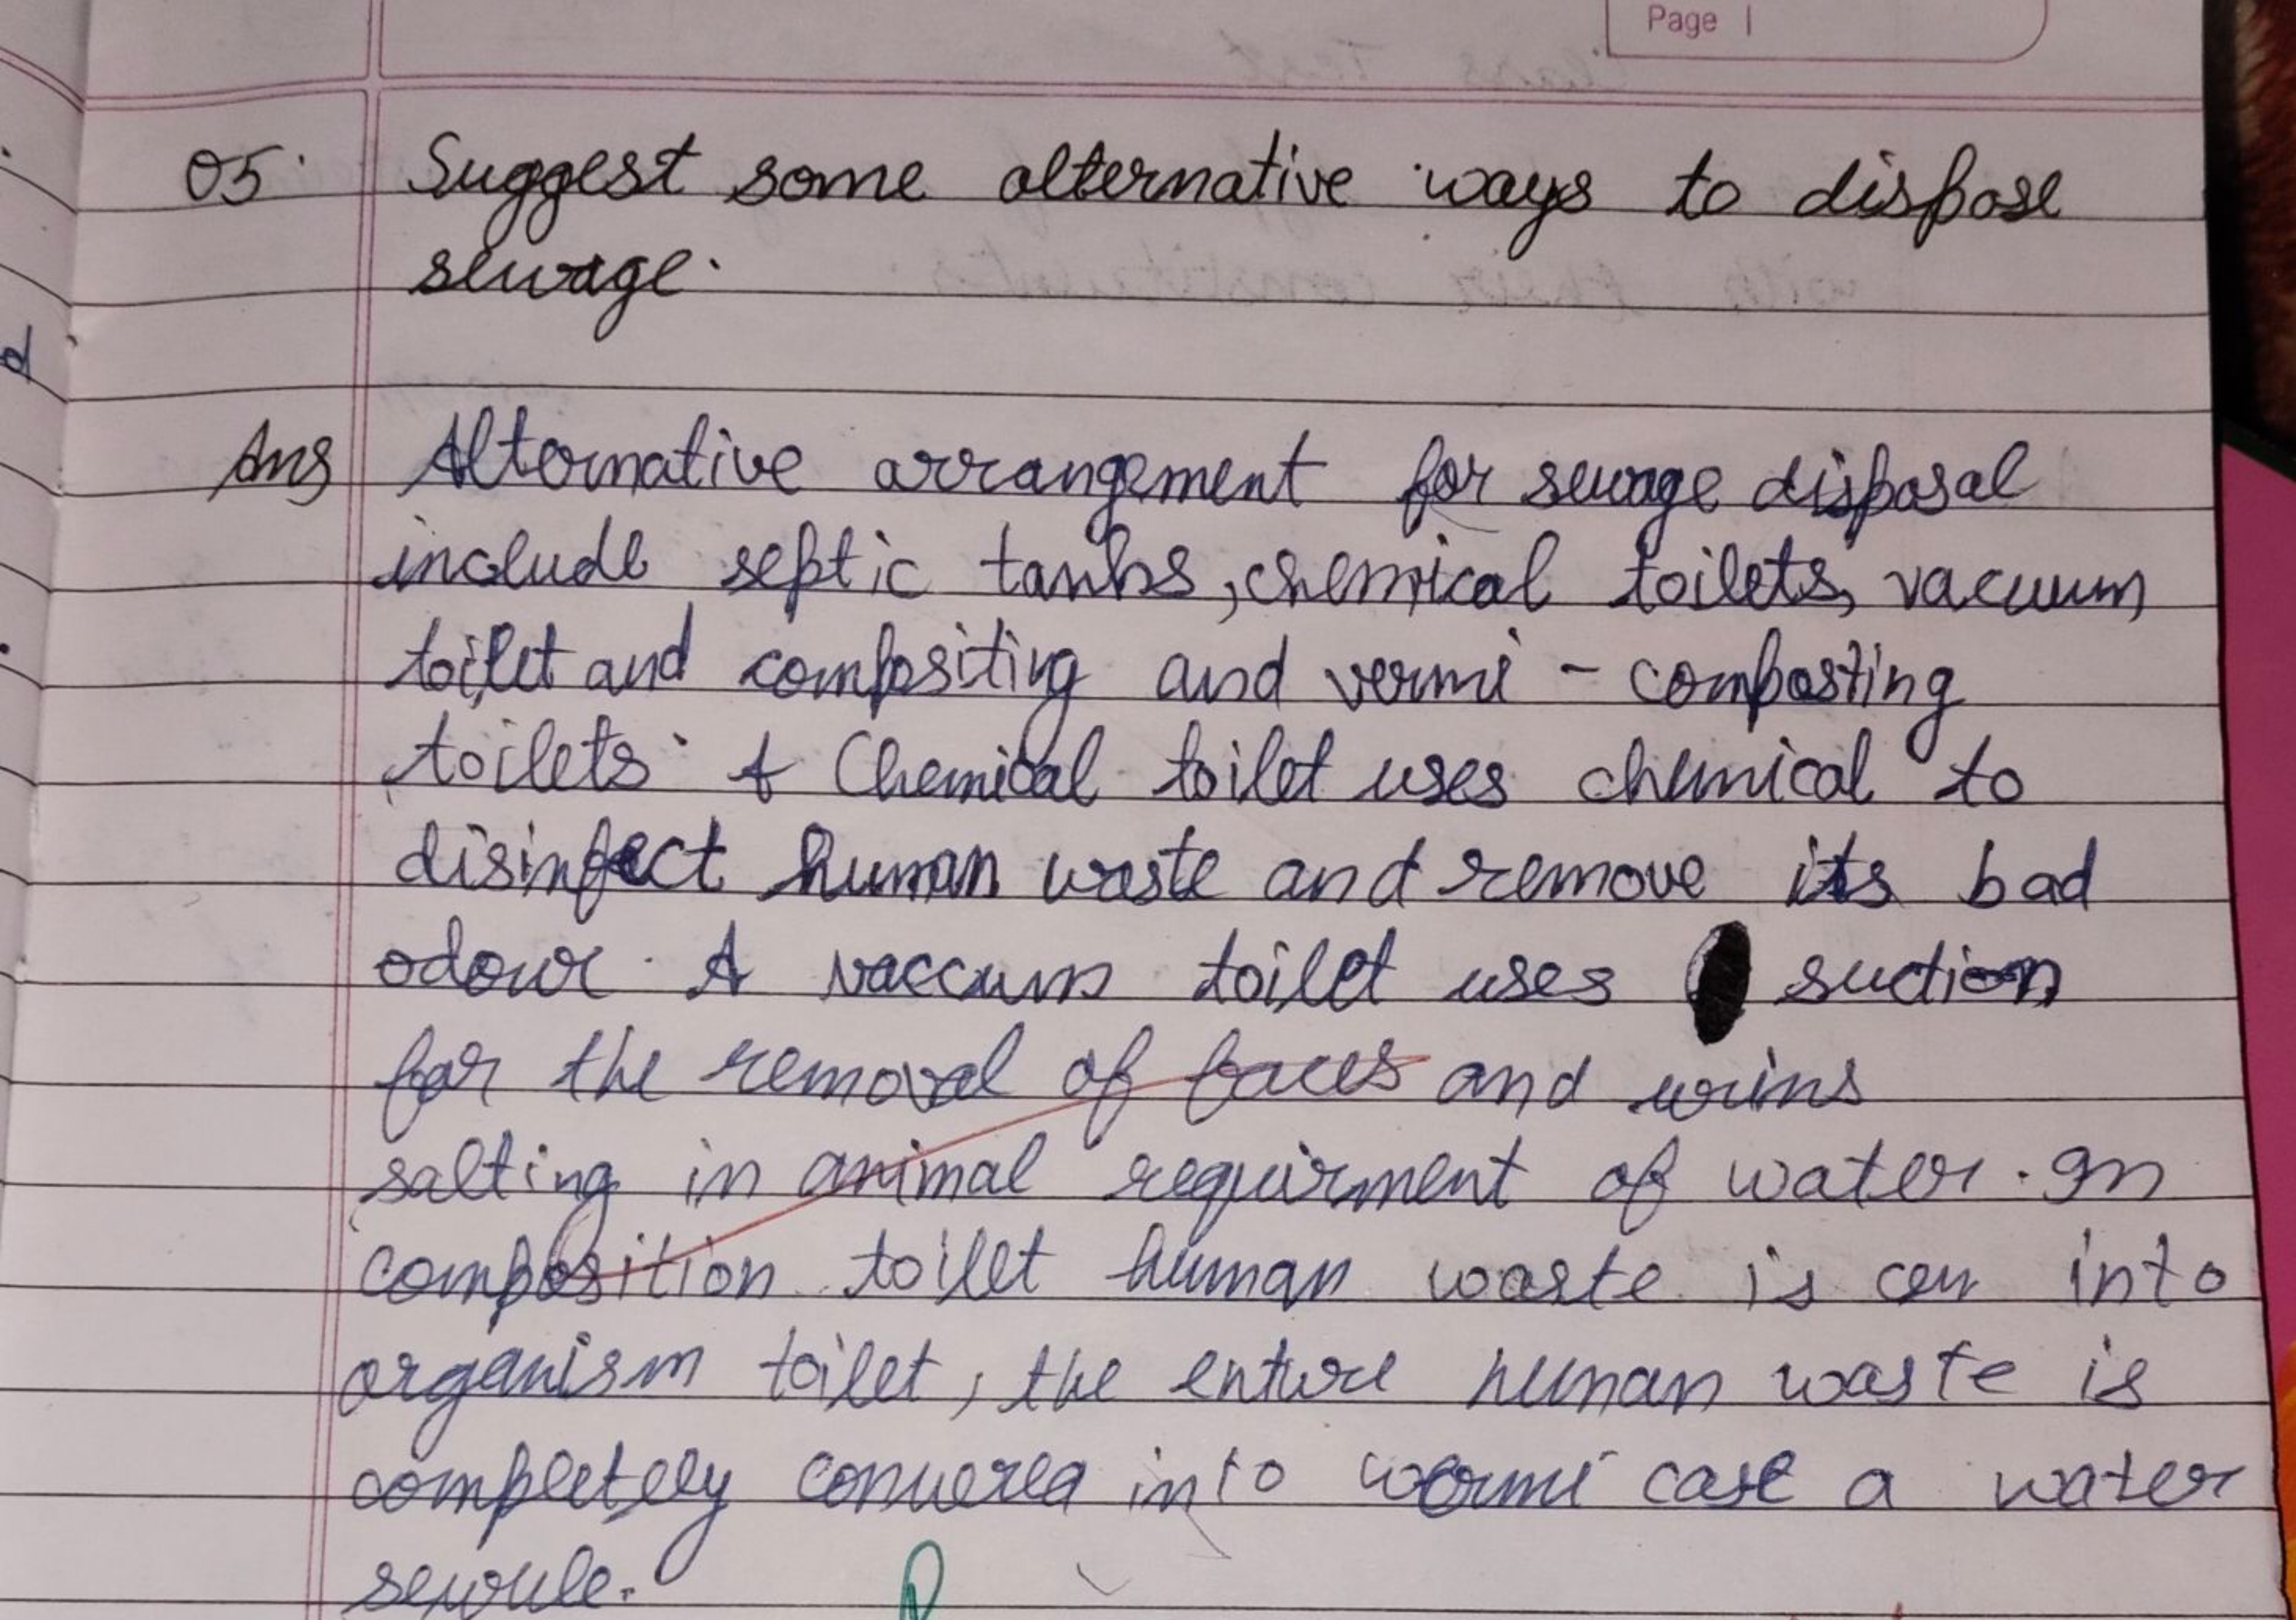 Page |
Q5. Suggest some alternative ways to dispose
sewage.
Ans Alternative arrangement for sewage disposal
include septic tanks, chemical toilets, vacuum
toilet and compositing and vermi - composting
toilets. A Chemical toilet uses chemical to
disinfect human waste and remove its bad
odour. A vaccum toilet uses suction
for the removal of faces and urins
salting in animal requirment of water. In
composition toilet human waste is con into
organism toilet, the enture human waste is
completely converea into wermi case a water
d